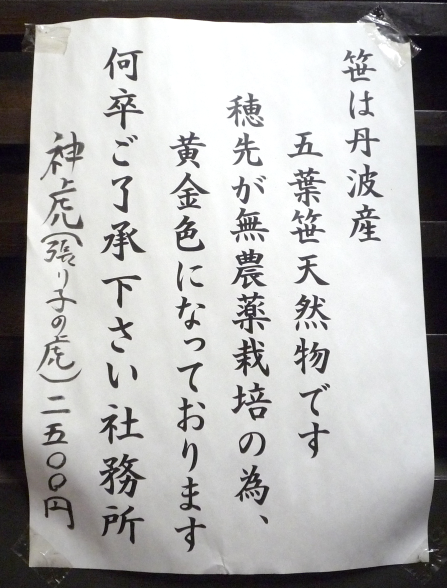 笹は丹波産
五葉笹天然物です
穂先が無農薬栽培の為、
黄金色になっております
何卒ご了承下さい社務所
神虎(張り子の虎)二五〇〇円